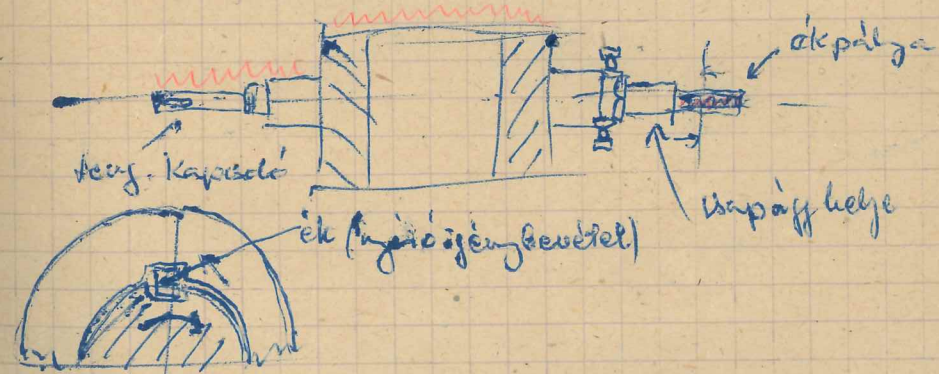 ékpálya
teng. kapcsoló
csapágy helye
ék (nyíró igénybevétel)